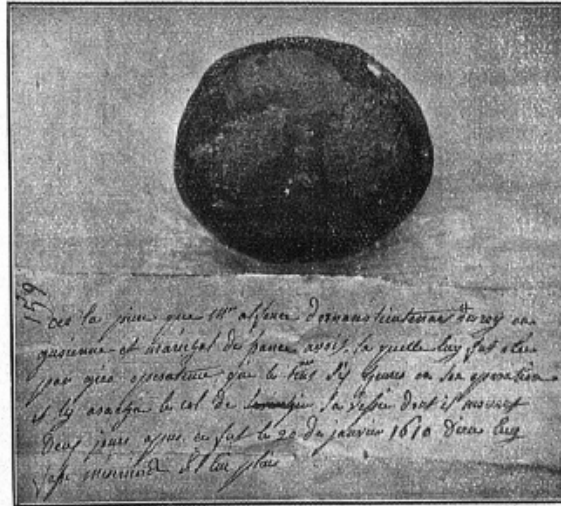 159
ces la pierre que Mr alfonce dornano lieutenant du roy en
guienne et marechal de france avoit. la quelle luy fut otée
par giro operateur que le tins six heures en son operation
et luy aracha le col de la vessie dont il mourut
Deux jours apres. ce fut le 20 de janvier 1610 Dieu luy
fase misericorde s'il luy plais